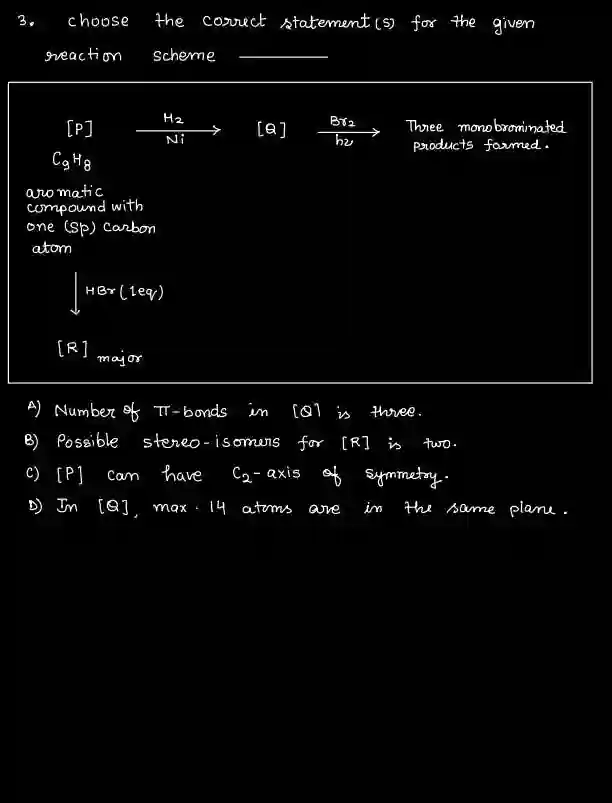 3. choose the correct statement(s) for the given
reaction scheme
[P] H2 Ni [Q] Br2 hν Three monobrominated
products formed.
C9H8
aromatic
compound with
one (sp) carbon
atom
HBr (1eq)
[R] major
A) Number of π-bonds in [Q] is three.
B) Possible stereo-isomers for [R] is two.
C) [P] can have C2-axis of symmetry.
D) In [Q], max. 14 atoms are in the same plane.